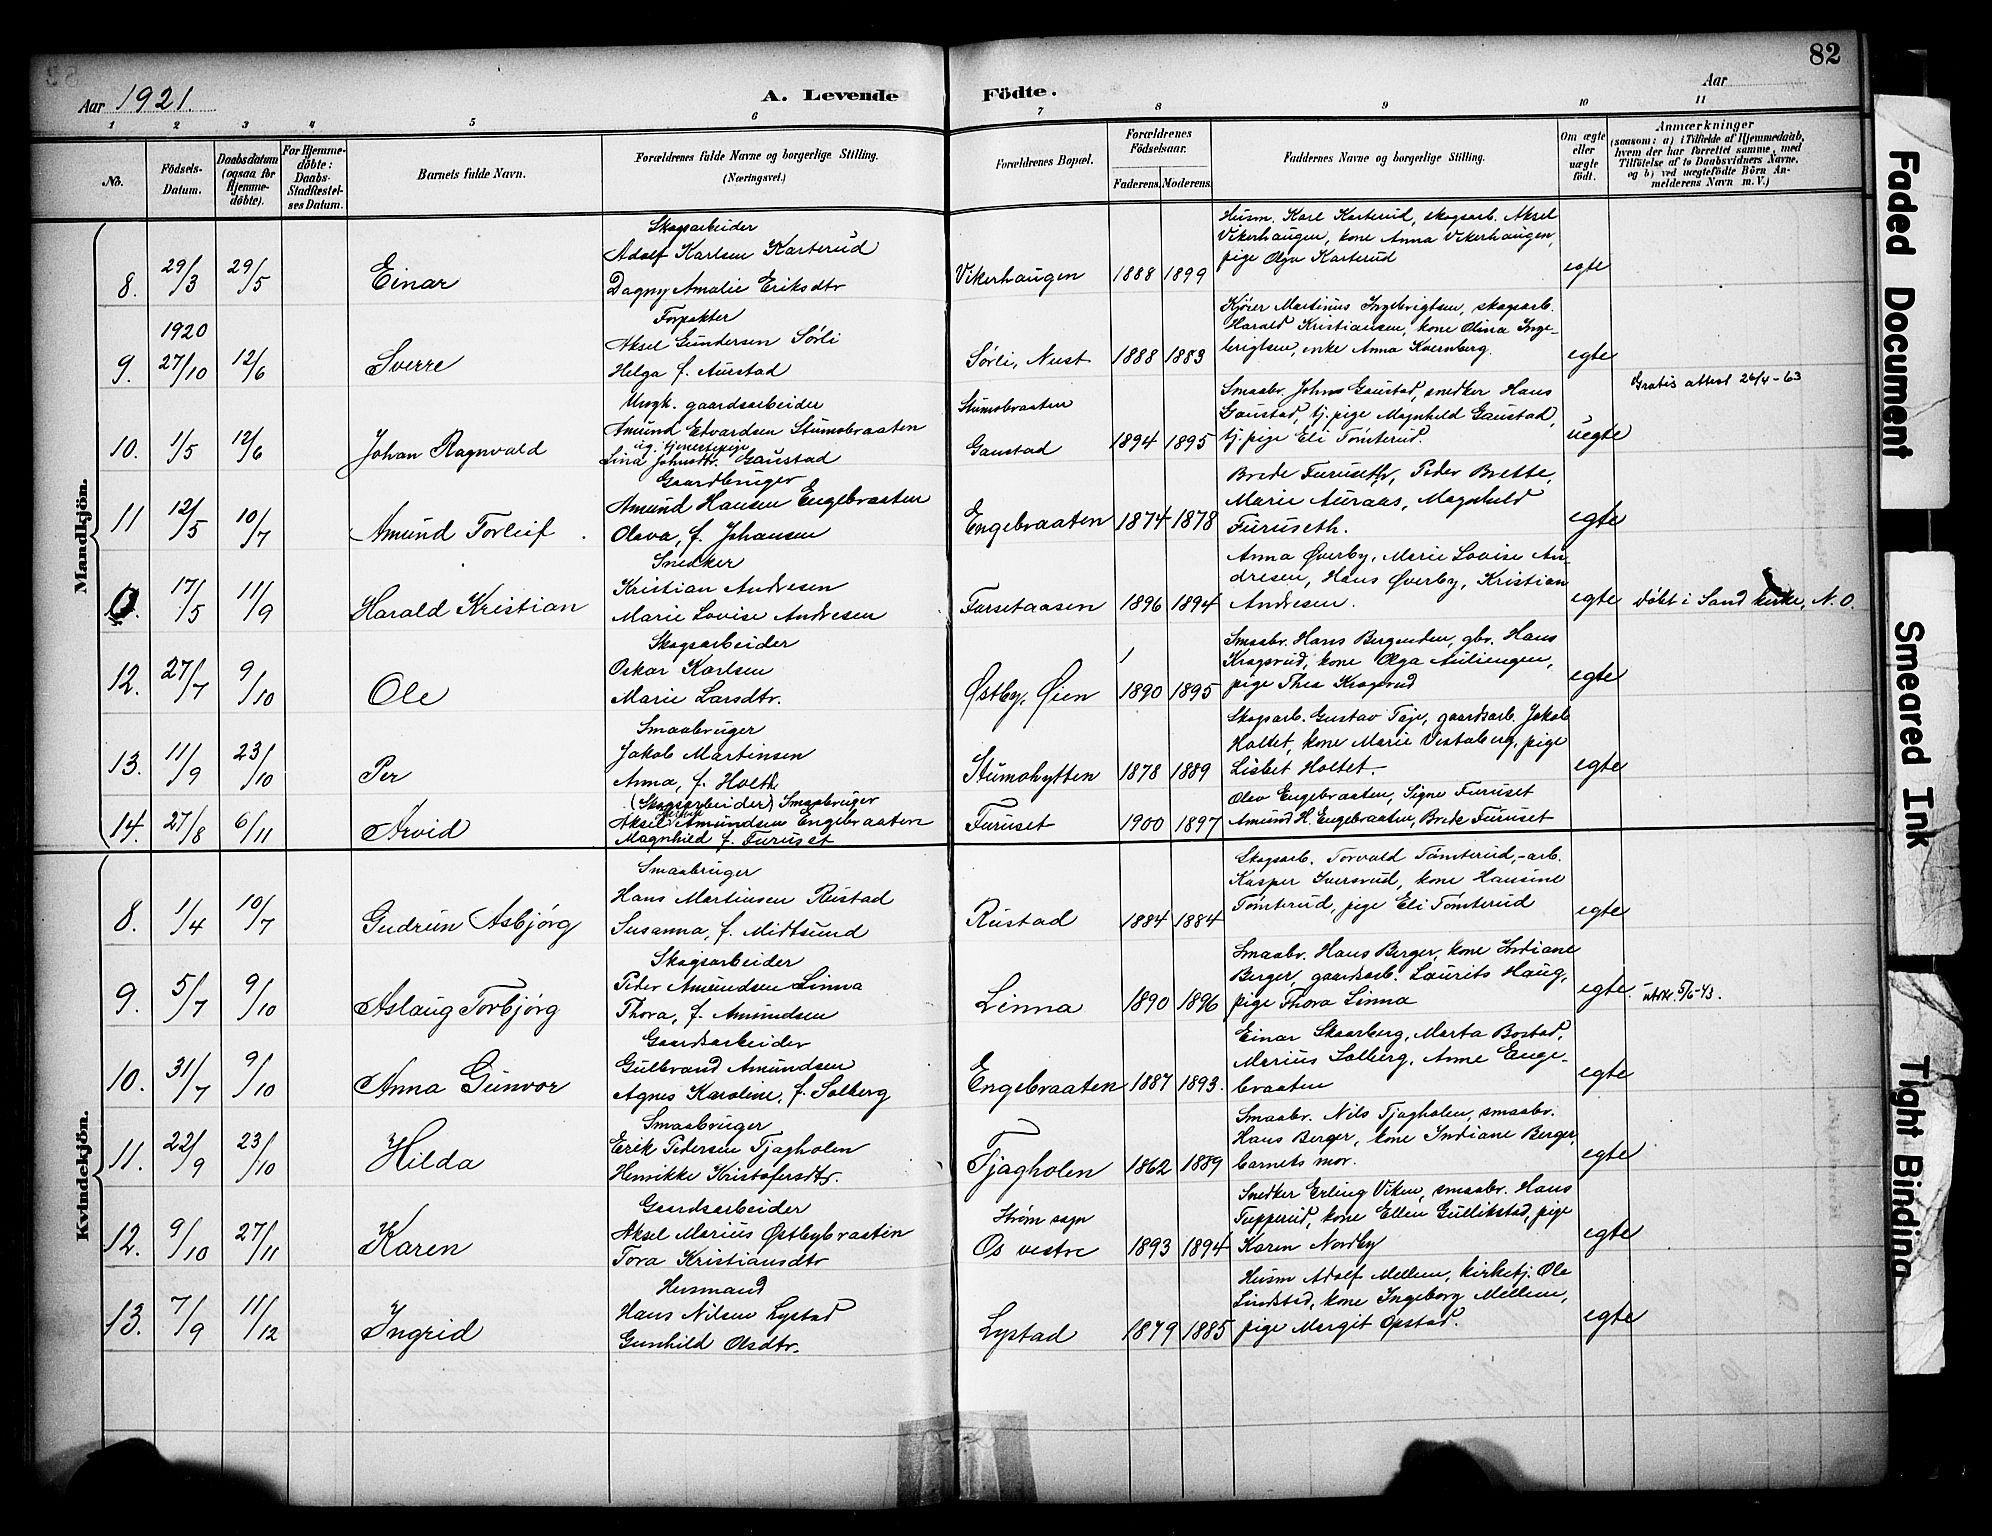 82
Aar 1921.
A. Levende Födte.
Aar
1 2 3 4 5 6 7 8 9 10 11
No.
Födsels-Datum.
Daabsdatum (ogsaa for Hjemme-döbte).
For Hjemme-döbte: Daabs-Stadfæstel-ses Datum.
Barnets fulde Navn.
Forældrenes fulde Navne og borgerlige Stilling.
(Næringsvei.)
Forældrenes Bopæl.
Forældrenes Födselsaar.
Faderens. Moderens.
Faddernes Navne og borgerlige Stilling.
Om ægte eller uægte födt.
Anmærkninger
(saasom: a) i Tilfælde af Hjemmedaab, hvem der har forrettet samme, med Tilföielse af to Daabsvidners Navne, og b) ved uægtefödte Börn An-melderens Navn m. V.)
Mandkjön.
8. 29/3 29/5 Einar
Skogsarbeider
Adolf Karlsen Karterud
Dagny Amalie Eriksdtr
Vikerhaugen 1888 1899
Husm. Karl Karterud, skogsarb. Aksel
Vikerhaugen, kone Anna Vikerhaugen,
pige Olga Karterud
egte
9. 1920 27/10 12/6 Sverre
Forpakter
Aksel Gundersen Sørli
Helga f. Aurstad
Sørli, Nust 1888 1883
Kjører Martinus Ingebrigtsen, skogsarb.
Harald Kristiansen, kone Olina Inge-
brigtsen, enke Anna Kvernberg.
egte
10. 1/5 12/6 Johan Ragnvald
Ungk. gaardsarbeider
Amund Edvardsen Stumobraaten
ug. tjenestepige
Lina Johnsdtr. Gaustad
Stumobraaten
Gaustad 1894 1895
Smaabr. Johns Gaustad, snedker Hans
Gaustad, tj. pige Magnhild Gaustad,
tj. pige Eli Tømterud.
uegte
Gratis attest 26/4-63
11 12/5 10/7 Amund Torleif
Gaardbruger
Amund Hansen Engebraaten
Olava, f. Johansen
Engebraaten 1874 1878
Brede Furuseth, Peder Brette,
Marie Auraas, Magnhild
Furuseth.
egte
0. 17/5 11/9 Harald Kristian
Snedker
Kristian Andresen
Marie Lovise Andresen
Farsetaasen 1896 1894
Anna Øverby, Marie Lovise An-
dresen, Hans Øverby, Kristian
Andresen.
egte
Døbt i Sand kirke, N. O.
12. 27/7 9/10 Ole
Skogsarbeider
Oskar Karlsen
Marie Larsdtr.
Østby, Øien 1890 1895
Smaabr. Hans Bergenden, gbr. Hans
Kragsrud, kone Olga Auliengen,
pige Thea Kragsrud
egte
13. 11/9 23/10 Per
Smaabruger
Jakob Martinsen
Anna, f. Holth
Stumohytten 1878 1889
Skogsarb. Gustav Taje, gaardsarb. Jakob
Holtet, kone Marie Vestaberg, pige
Lisbet Holtet.
egte
14. 27/8 6/11 Arvid
(Skogsarbeider) Smaabruger
Aksel Amundsen Engebraaten
Magnhild f. Furuset
Furuset 1900 1897
Olav Engebraaten, Signe Furuset
Amund H. Engebraaten, Brede Furuset
Kvindekjön.
8. 1/4 10/7 Gudrun Asbjörg
Smaabruger
Hans Martinsen Rustad
Susanna, f. Midtsund
Rustad 1884 1884
Skogsarb. Torvald Tømterud, -arb.
Kasper Iversrud, kone Hansine
Tømterud, pige Eli Tømterud
egte
9. 5/7 9/10 Aslaug Torbjörg
Skogsarbeider
Peder Amundsen Linna
Thora, f. Amundsen
Linna 1890 1896
Smaabr. Hans Berger, kone Indiane
Berger, gaardsarb. Laurits Haug,
pige Thora Linna
egte.
utskr. 5/6-43.
10. 31/7 9/10 Anna Gunvor
Gaardsarbeider
Gulbrand Amundsen
Agnes Karoline, f. Solberg
Engebraaten 1887 1893.
Einar Skaarberg, Marta Bostad,
Marius Solberg, Anne Enge-
braaten
egte
11. 22/9 23/10 Hilda
Smaabruger
Erik Pedersen Tjagholen
Henrikke Kristofersdtr.
Tjagholen 1862 1889
Smaabr. Nils Tjagholen, smaabr.
Hans Berger, kone Indiane Berger,
barnets mor.
egte
12. 9/10 27/11 Karen
Gaardsarbeider
Aksel Marius Østbybraaten
Tora Kristiansdtr
Strøm sogn
Os vestre 1893 1894
Snedker Erling Viken, smaabr. Hans
Tupperud, kone Ellen Gullikstad, pige
Karen Nordby
egte
13. 7/9 11/12 Ingrid
Husmand
Hans Nilsen Lystad
Gunhild Olsdtr.
Lystad 1879 1885
Husm Adolf Mellem, kirketj. Ole
Lindstad, kone Ingeborg Mellem,
pige Margit Opstad.
egte
Faded Document
Smeared Ink
Tight Binding